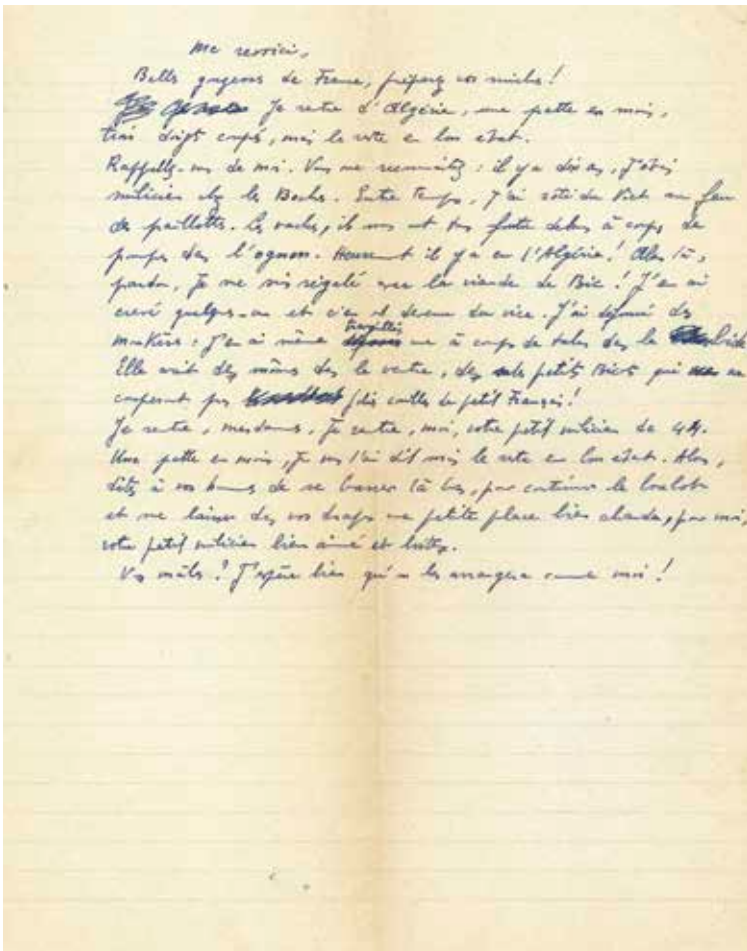 Me revoici,
Belles garces de France, préparez vos miches !
Je rentre d'Algérie, une patte en moins,
trois doigts coupés, mais le reste en bon état.
Rappelez-vous de moi. Vous me reconnaîtrez : il y a dix ans, j'étais
milicien chez les Boches. Entre temps, j'ai rôti du Viet au feu
de paillottes. Les vaches, ils nous ont foutu dehors à coups de
pompes dans l'ognon. Heureusement il y a eu l'Algérie ! Alors là,
pardon, je me suis régalé avec la viande de Bic ! J'en ai
crevé quelques-uns et c'en est devenu du vice. J'ai des
moukères : j'en ai même travaillé une à coups de talon dans le bide
Elle avait des mômes dans le ventre, des petits Bicots qui ne
couperont pas jolies couilles de petit Français !
Je rentre, mesdames, je rentre, moi, votre petit milicien de 44.
Une patte en moins, je vous l'ai dit mais le reste en bon état. Alors,
dites à vos hommes de se barrer là bas, pour continuer le boulot
et me laisser dans vos draps une petite place bien chaude, pour moi,
votre petit milicien bien aimé et
Vos mâles ? J'espère bien qu'on les arrangera comme moi !